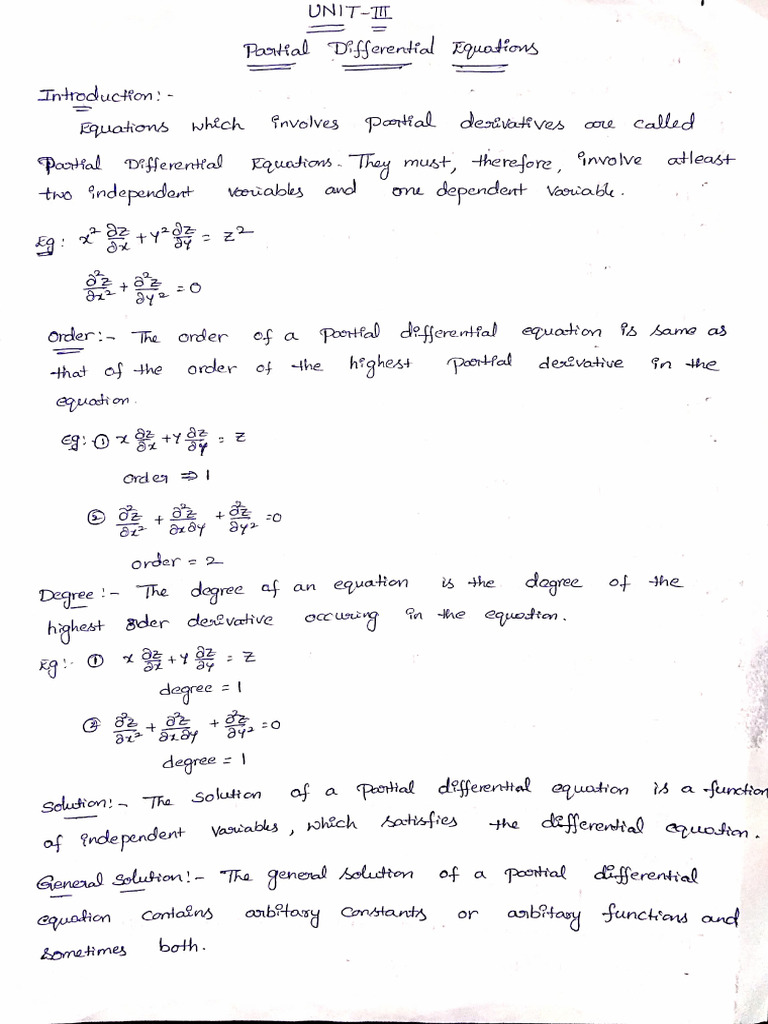 UNIT-III
Partial Differential Equations
Introduction:-
Equations which involves partial derivatives are called
Partial Differential Equations. They must, therefore, involve atleast
two independent variables and one dependent variable.
Eg: x² ∂z/∂x + y² ∂z/∂y = z²
∂²z/∂x² + ∂²z/∂y² = 0
Order:- The order of a partial differential equation is same as
that of the order of the highest partial derivative in the
equation.
Eg:- ① x ∂z/∂x + y ∂z/∂y = z
order ⇒ 1
② ∂²z/∂x² + ∂²z/∂x∂y + ∂²z/∂y² = 0
order = 2
Degree:- The degree of an equation is the degree of the
highest order derivative occuring in the equation.
Eg:- ① x ∂z/∂x + y ∂z/∂y = z
degree = 1
② ∂²z/∂x² + ∂²z/∂x∂y + ∂²z/∂y² = 0
degree = 1
Solution:- The solution of a partial differential equation is a function
of independent variables, which satisfies the differential equation.
General Solution:- The general solution of a partial differential
equation contains arbitary constants or arbitary functions and
sometimes both.